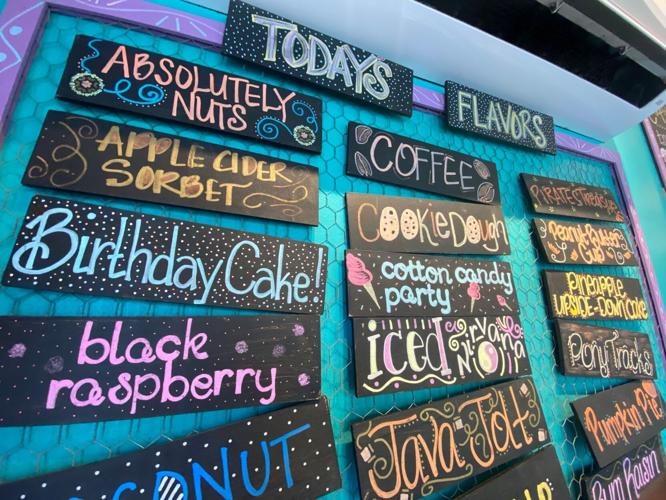 TODAY'S
FLAVORS
ABSOLUTELY
NUTS
APPLE CIDER
SORBET
Birthday Cake!
black
raspberry
COCONUT
COFFEE
COOKIE DOUGH
cotton candy
party
iced nirvana
Java Jolt
PIRATES Treasure
Peanut Butter
Cup
PINEAPPLE
UPSIDE-DOWN CAKE
Pony Tracks
Pumpkin Pie
Rum Raisin